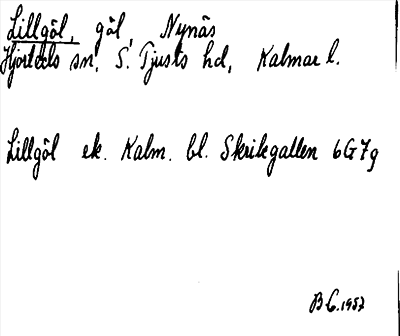 Lillgöl, göl, Nynäs
Hjorteds sn, S. Tjusts hd, Kalmar l.
Lillgöl ek. Kalm. bl. Skrikegallen 6G7g
B C. 1957